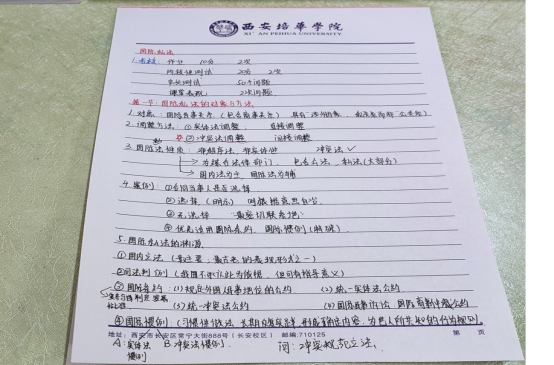 西安培華学院
XI'AN PEIHUA UNIVERSITY
国际私法
1.考核: 作业 10分 2次
阶段性测试 20分 2次
期末测试 50+问题
课堂表现 2次问题
第一节:国际私法的对象与方法
1.对象:国际民事关系(包含商事关系)
2.调整方法:①实体法调整 直接调整
②冲突法调整 间接调整
3.国际法性质: 冲突法✓
国内法为主,国际法为辅
4.惯例:①合同当事人是否选择
②选择(明示) 意思自治
③无选择 最密切联系地
④优先适用国际条约、国际惯例
5.国际私法的渊源
①国内立法(最主要、最古老的表现形式之一)
②司法判例(我国不承认此为渊源,但可有指导意义)
③国际条约:(1)规定外国人民事地位的公约 (2)统一实体法公约
(3)统一冲突法公约 (4)国际民事诉讼法、国际商事仲裁公约
④国际惯例(习惯性做法,长期反复实践,形成确定内容,为世人所共知的行为规则)
地址:西安市长安区常宁大街888号(长安校区) 邮编:710125 第 页
A:实体法 B.冲突法惯例.
惯例
问:冲突规范立法.